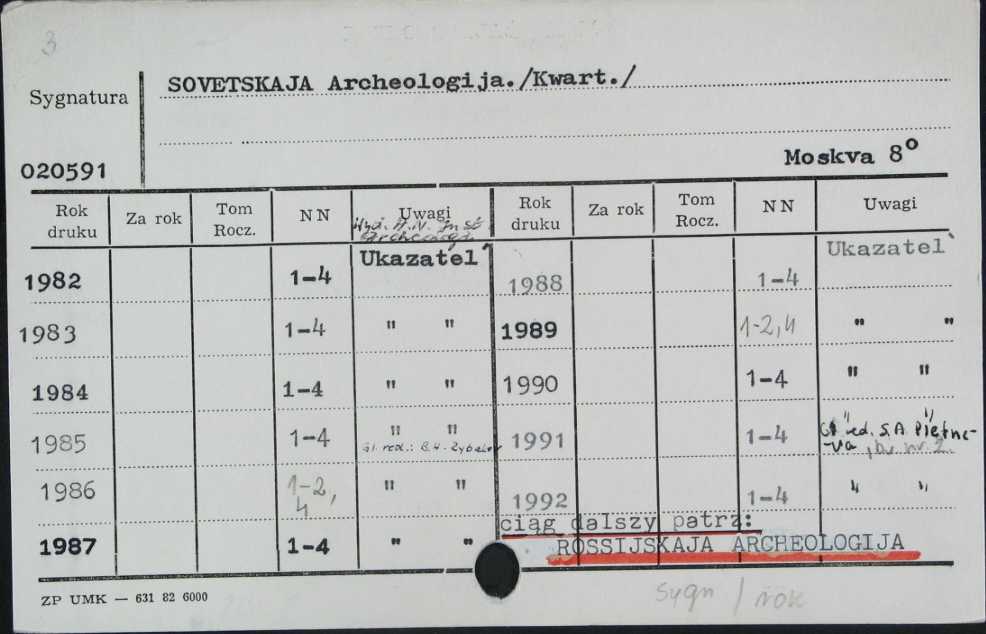 3
SOVETSKAJA Archeologija./Kwart./
Sygnatura
020591
Moskva 8°
Rok druku | Za rok | Tom Rocz. | NN | Uwagi | Rok druku | Za rok | Tom Rocz. | NN | Uwagi
1982 | 1-4 | Ukazatel' | 1988 | 1-4 | Ukazatel'
1983 | 1-4 | " " | 1989 | 1-2,4 | " "
1984 | 1-4 | " " | 1990 | 1-4 | " "
1985 | 1-4 | " " | 1991 | 1-4 | " " red. S.A. Pletne-
-va, br. nr. 2.
1986 | 1-2, 4 | " " | 1992 | 1-4 | " "
ciąg dalszy patrz:
1987 | 1-4 | " " | ROSSIJSKAJA ARCHEOLOGIJA
ZP UMK — 631 82 6000
sygn / rok